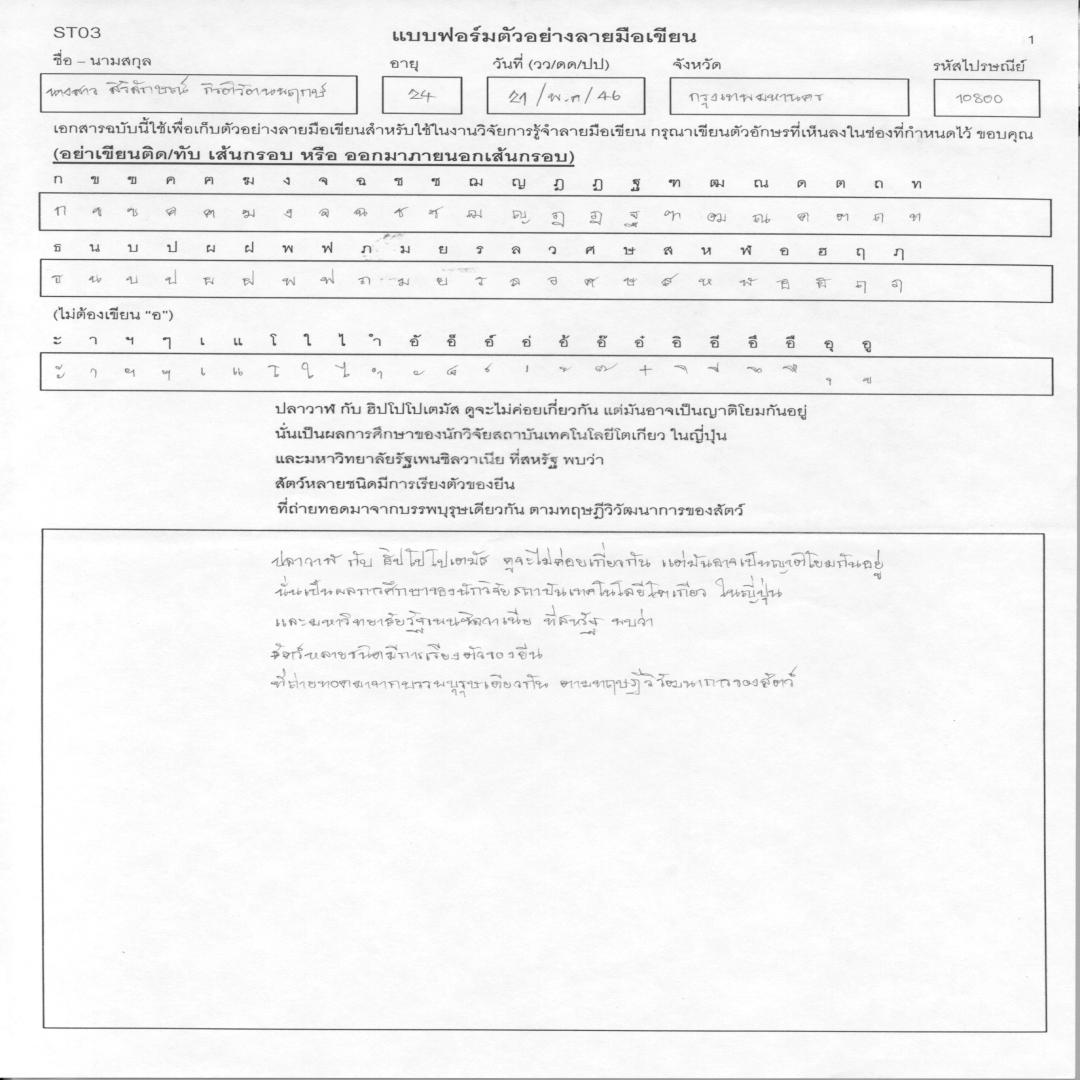 ST03
แบบฟอร์มตัวอย่างลายมือเขียน
1
ชื่อ – นามสกุล อายุ วันที่ (วว/ดด/ปป) จังหวัด รหัสไปรษณีย์
นางสาว สิริลักษณ์ 24 21 / พ.ค / 46 กรุงเทพมหานคร 10800
เอกสารฉบับนี้ใช้เพื่อเก็บตัวอย่างลายมือเขียนสำหรับใช้ในงานวิจัยการรู้จำลายมือเขียน กรุณาเขียนตัวอักษรที่เห็นลงในช่องที่กำหนดไว้ ขอบคุณ
(อย่าเขียนติด/ทับ เส้นกรอบ หรือ ออกมาภายนอกเส้นกรอบ)
ก ข ฃ ค ฅ ฆ ง จ ฉ ช ซ ฌ ญ ฎ ฏ ฐ ฑ ฒ ณ ด ต ถ ท
ก ข ฃ ค ฅ ฆ ง จ ฉ ช ซ ฌ ญ ฎ ฏ ฐ ฑ ฒ ณ ด ต ถ ท
ธ น บ ป ผ ฝ พ ฟ ภ ม ย ร ล ว ศ ษ ส ห ฬ อ ฮ ฤ ฦ
ธ น บ ป ผ ฝ พ ฟ ภ ม ย ร ล ว ศ ษ ส ห ฬ อ ฮ ฤ ฦ
(ไม่ต้องเขียน “อ”)
ะ า ฯ ๆ ๅ เ แ โ ใ ไ ำ อั อ็ อ์ อ่ อ้ อ๊ อ๋ อิ อี อึ อื อุ อู
ะ า ฯ ๆ เ แ โ ใ ไ ำ ั ็ ์ ่ ้ ๊ ๋ ิ ี ึ ื ุ ู
ปลาวาฬ กับ ฮิปโปโปเตมัส ดูจะไม่ค่อยเกี่ยวกัน แต่มันอาจเป็นญาติโยมกันอยู่
นั่นเป็นผลการศึกษาของนักวิจัยสถาบันเทคโนโลยีโตเกียว ในญี่ปุ่น
และมหาวิทยาลัยรัฐเพนซิลวาเนีย ที่สหรัฐ พบว่า
สัตว์หลายชนิดมีการเรียงตัวของยีน
ที่ถ่ายทอดมาจากบรรพบุรุษเดียวกัน ตามทฤษฎีวิวัฒนาการของสัตว์
ปลาวาฬ กับ ฮิปโปโปเตมัส ดูจะไม่ค่อยเกี่ยวกัน แต่มันอาจเป็นญาติโยมกันอยู่
นั่นเป็นผลการศึกษาของนักวิจัยสถาบันเทคโนโลยีโตเกียว ในญี่ปุ่น
และมหาวิทยาลัยรัฐเพนซิลวาเนีย ที่สหรัฐ พบว่า
สัตว์หลายชนิดมีการเรียงตัวของยีน
ที่ถ่ายทอดมาจากบรรพบุรุษเดียวกัน ตามทฤษฎีวิวัฒนาการของสัตว์